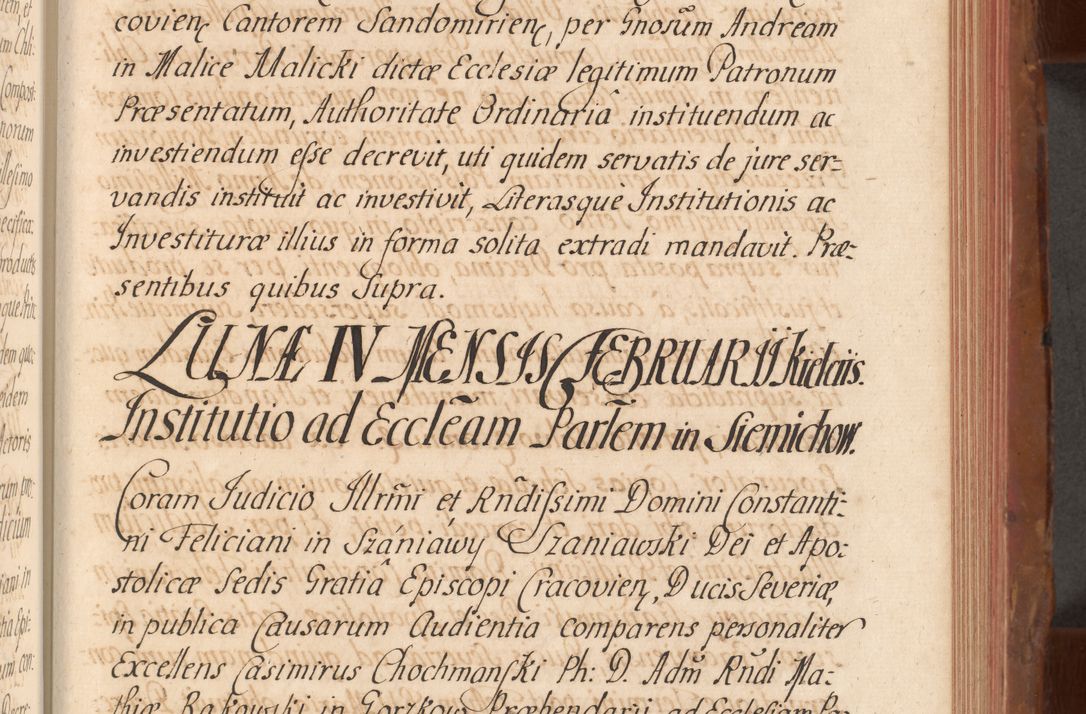 covienę Cantorem Sandomirienę, per Gnosum̃ Andream
in Malice Malicki dictæ Ecclesiæ legitimum Patronum
Præsentatum, Authoritate Ordinariâ instituendum ac
investiendum eſse decrevit, uti quidem servatis de jure ser:
vandis instituit ac investivit, Literasquè Institutionis ac
Investituræ illius in forma solita extradi mandavit. Præ:
sentibus quibus Supra.
LUNÆ IV MENSIS FEBRUARII Kielciis.
Institutio ad Ecclẽam Parl̃em in Siemichow.
Coram Judicio Illrm̃i et Rñdiſsimi Domini Constanti:
ni Feliciani in Szániáwy Szaniawski Dei et Apo:
stolicæ Sedis Gratiâ Episcopi Cracovienę, Ducis Severiæ,
in publica Causarum Audientia comparens personaliter
Excellens Casimirus Chochmanſki Ph: D. Adm̃ Rñdi Ma:
thiæ Bakowski in Gorzkow Præbendarii ad Ecclesiam